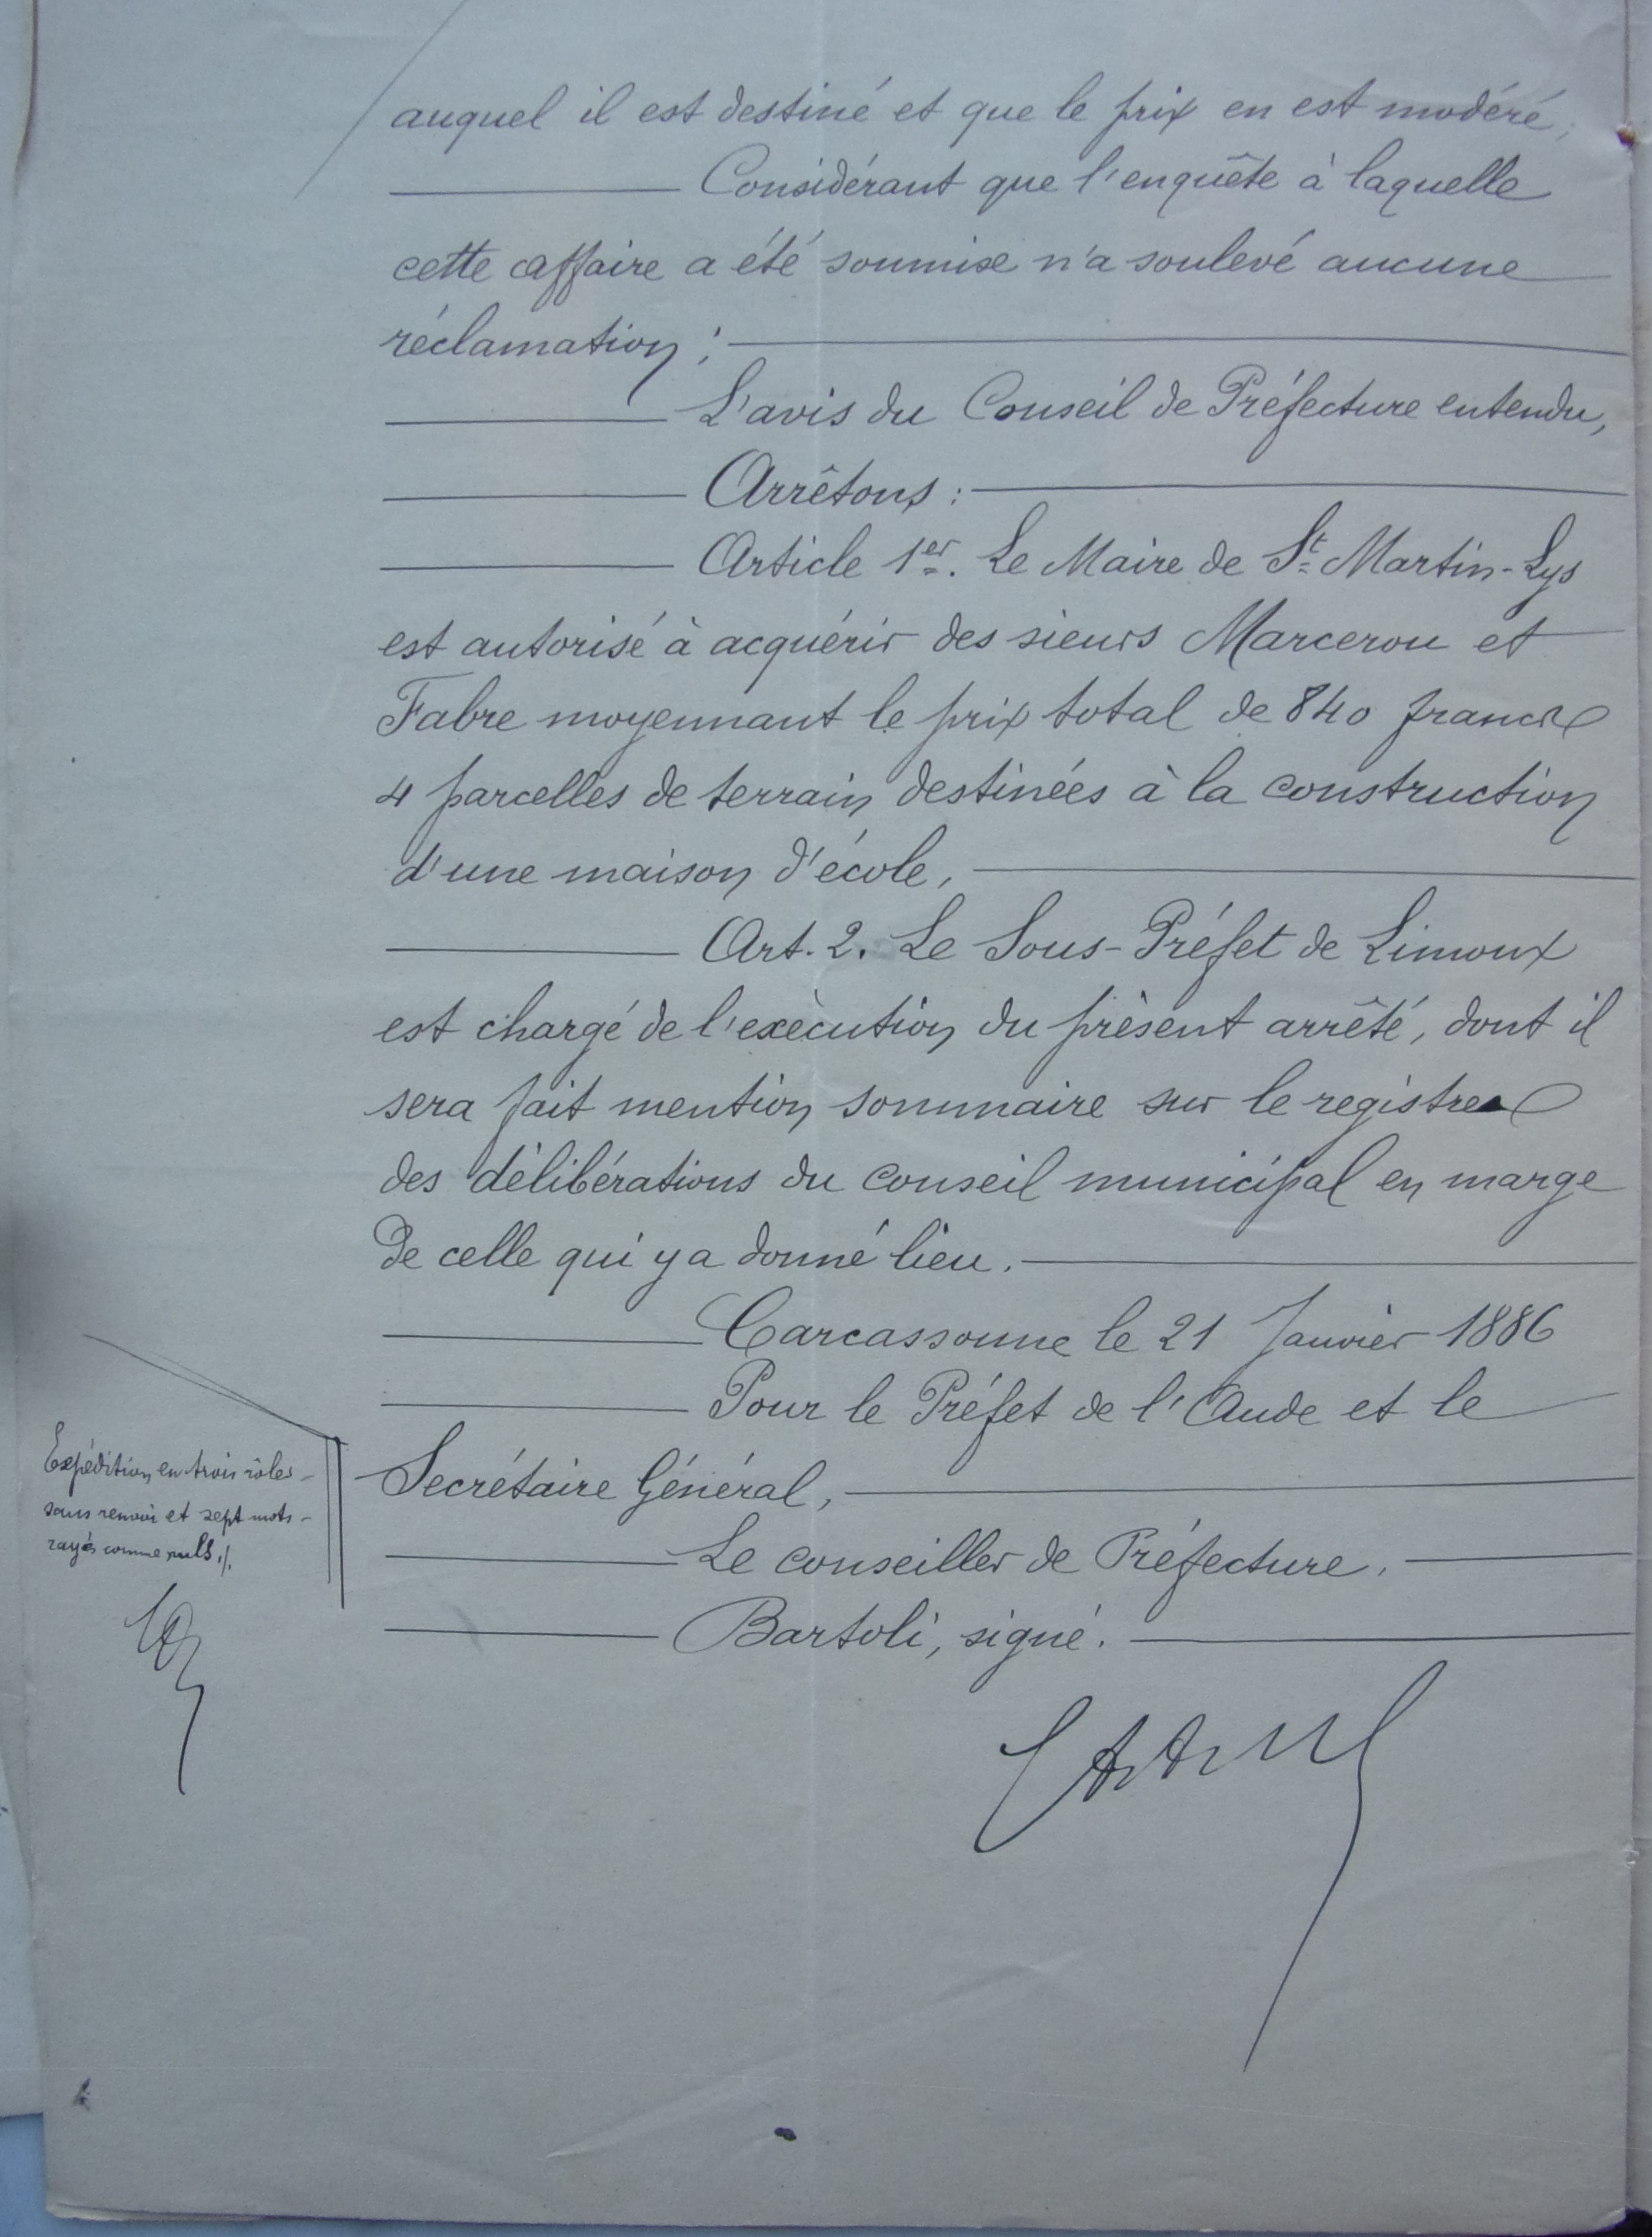 auquel il est destiné et que le prix en est modéré;
Considérant que l'enquête à laquelle
cette affaire a été soumise n'a soulevé aucune
réclamation;
L'avis du Conseil de Préfecture entendu,
Arrêtons:
Article 1er. Le Maire de St Martin-Lys
est autorisé à acquérir des sieurs Marcerou et
Fabre moyennant le prix total de 840 francs
4 parcelles de terrain destinées à la construction
d'une maison d'école.
Art. 2. Le Sous-Préfet de Limoux
est chargé de l'exécution du présent arrêté, dont il
sera fait mention sommaire sur le registre
des délibérations du conseil municipal en marge
de celle qui y a donné lieu.
Carcassonne le 21 Janvier 1886
Pour le Préfet de l'Aude et le
Secrétaire Général,
Le conseiller de Préfecture.
Bartoli, signé.
Expédition en trois rôles
sans renvoi et sept mots
rayés comme nuls ./.